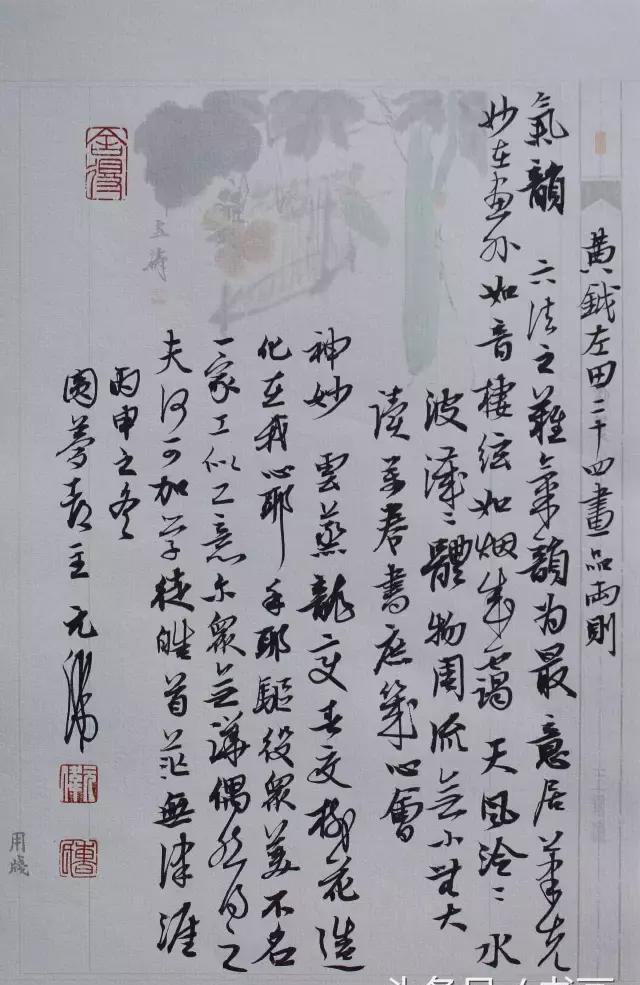 黄鉞左田二十四畫品両則
氣韻 六法之難氣韻为最意居筆先
妙在畫外如音棲絃如烟成靄天風泠〻水
波激〻體物周流無小無大
讀萬卷書庶幾心會
神妙 雲蒸龍变春交樹花造
化在我心耶手耶驅役衆美不名
一家工似工意尔衆無譁偶然得之
夫何可加学徒皓首茫無津涯
丙申之冬
圆夢斋主元
用牋
头条号 / 书画